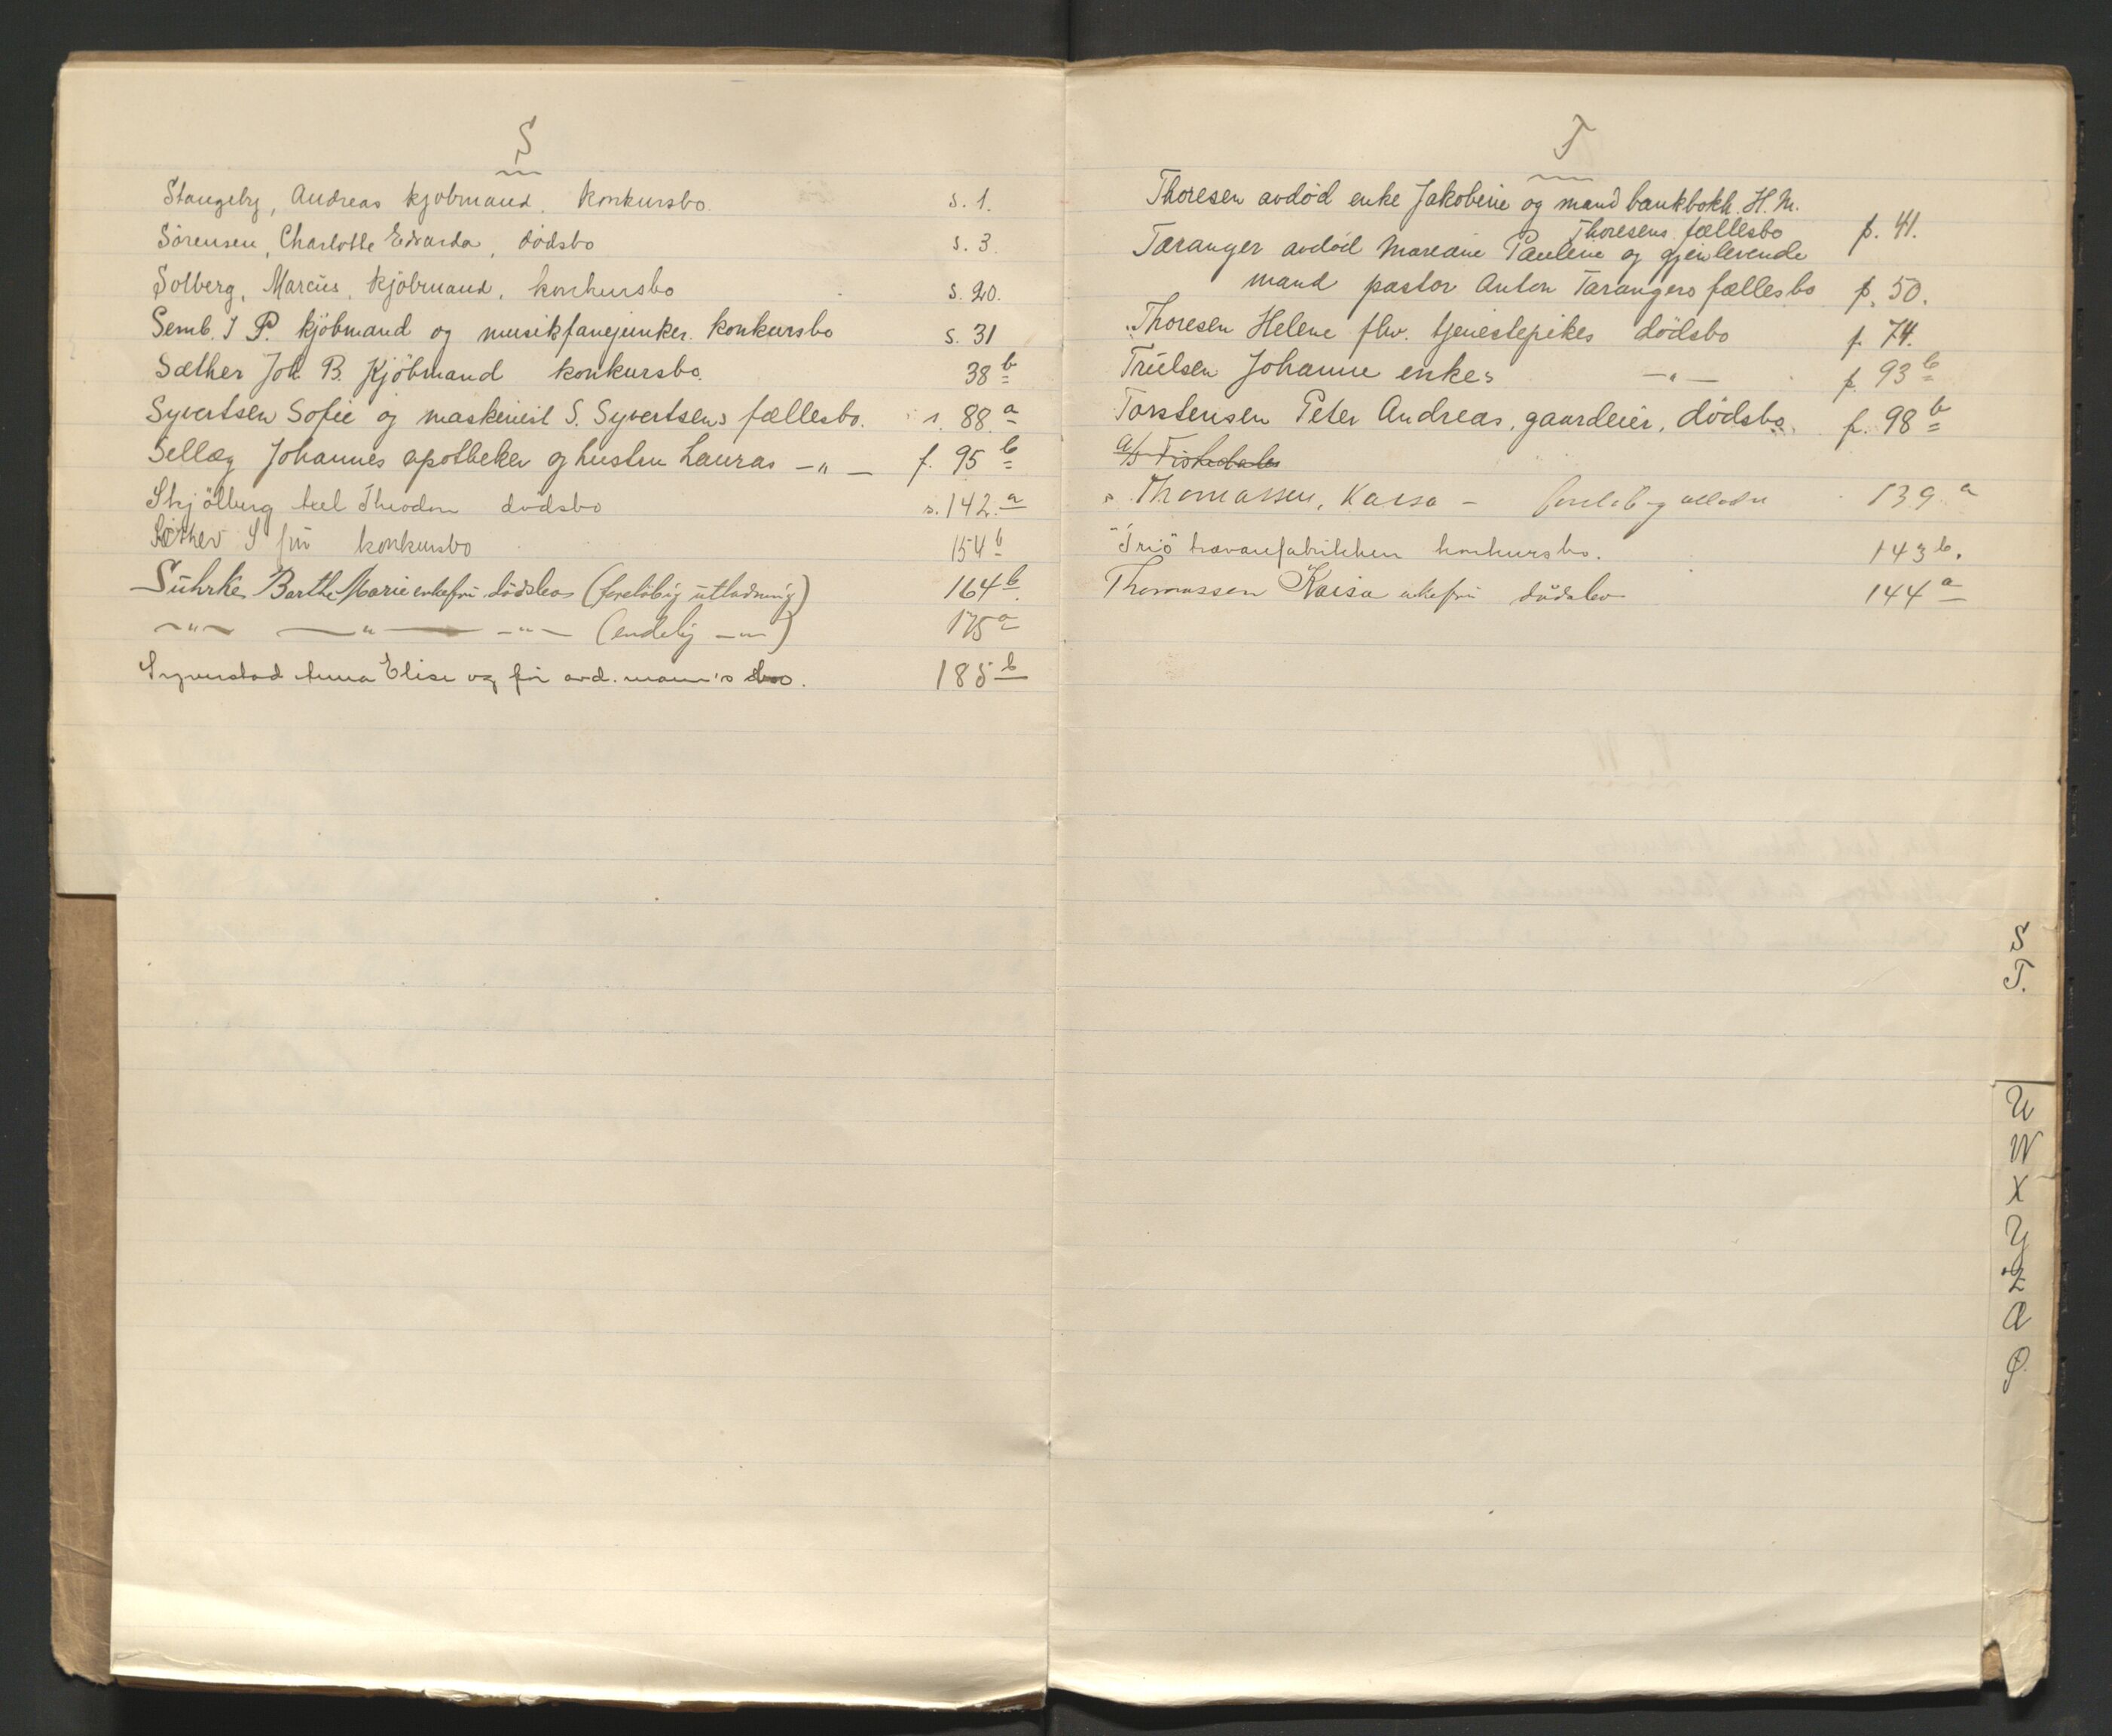 S
Stangeby, Andreas kjöbmand. konkursbo. s. 1.
Sörensen, Charlotte Edvarda, dödsbo s. 3.
Solberg, Marcus, kjöbmand, konkursbo s. 20.
Semb. I P. kjöbmand og musikfanejunker konkursbo s. 31
Sæther Joh. B. Kjöbmand konkursbo. 38 b
Syvertsen Sofie og maskinist S. Syvertsens fællesbo. s. 88 a
Sellæg Johannes apotheker og hustru Lauras — " — f. 95 b
Skjölberg Theodor dødsbo s. 142. a
Sæther S fru konkursbo 154 b
Suhrke, Barthe Marie enkefru dödsbo (foreløbig utlodning) 164 b
— " — — " — — " — (endelig — " —) 175 a
Syverstad Anna Elise og avd. mann's bo. 185 b
T
Thoresen avdöd enke Jakobine og mand bankbokh. H. M.
Thoresens fællesbo p. 41.
Taranger avdöd Mareane Pauline og gjenlevende
mand pastor Anton Tarangers fællesbo p. 50.
Thoresen Helene fhv. tjenestepikes dödsbo f. 74.
Truelsen Johanne enkes — " — f. 93 b
Torstensen Peter Andreas, gaardeier, dödsbo. f. 98 b
a/s
Thomassen, Kaisa – foreløbig 139 a
"Trio" trævarefabrikken konkursbo. 143 b.
Thomassen Kaisa enkefru dödsbo 144 a
S
T.
U
W
X
Y
Z
Æ
Ø